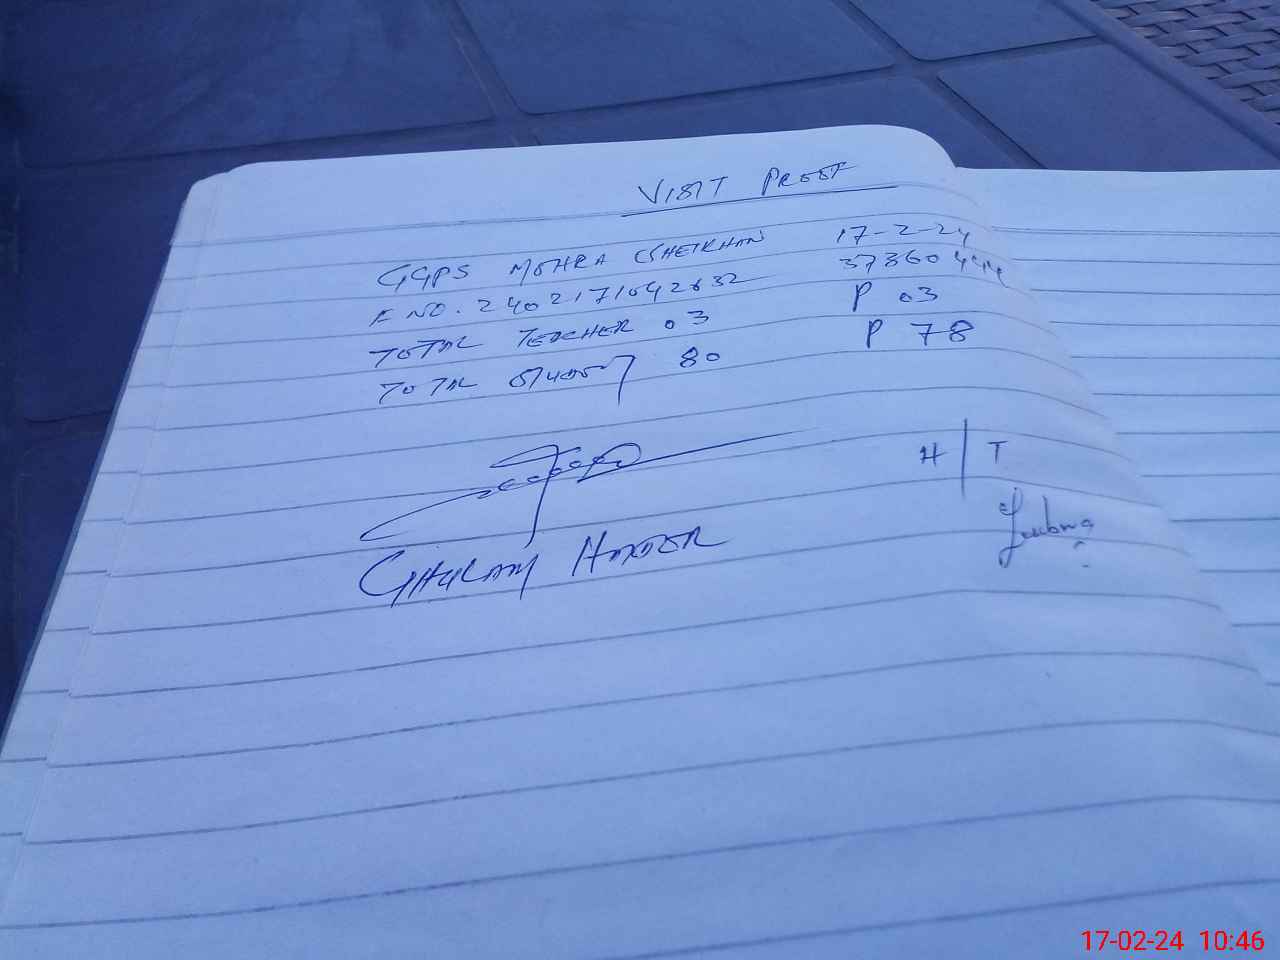 VISIT PROOF
GGPS MOHRA SHEIKHAN 17-2-24
F NO. 2402171042632 37360444
TOTAL TEACHER 03 P 03
TOTAL STUDENT 80 P 78
H | T
GHULAM HAIDER
17-02-24 10:46